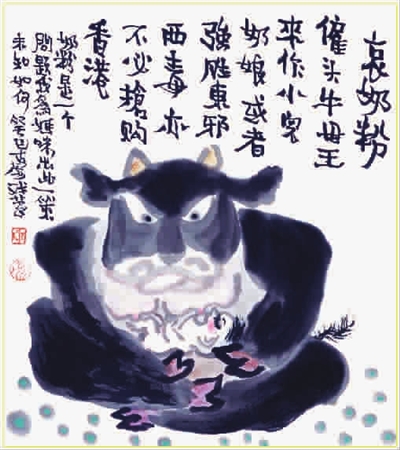 哀奶粉
催头牛母王
来作小儿
奶娘或者
强胜東邪
西毒亦
不必搶购
香港
奶粉是一个
問题我為妈咪出此一策
未知如何